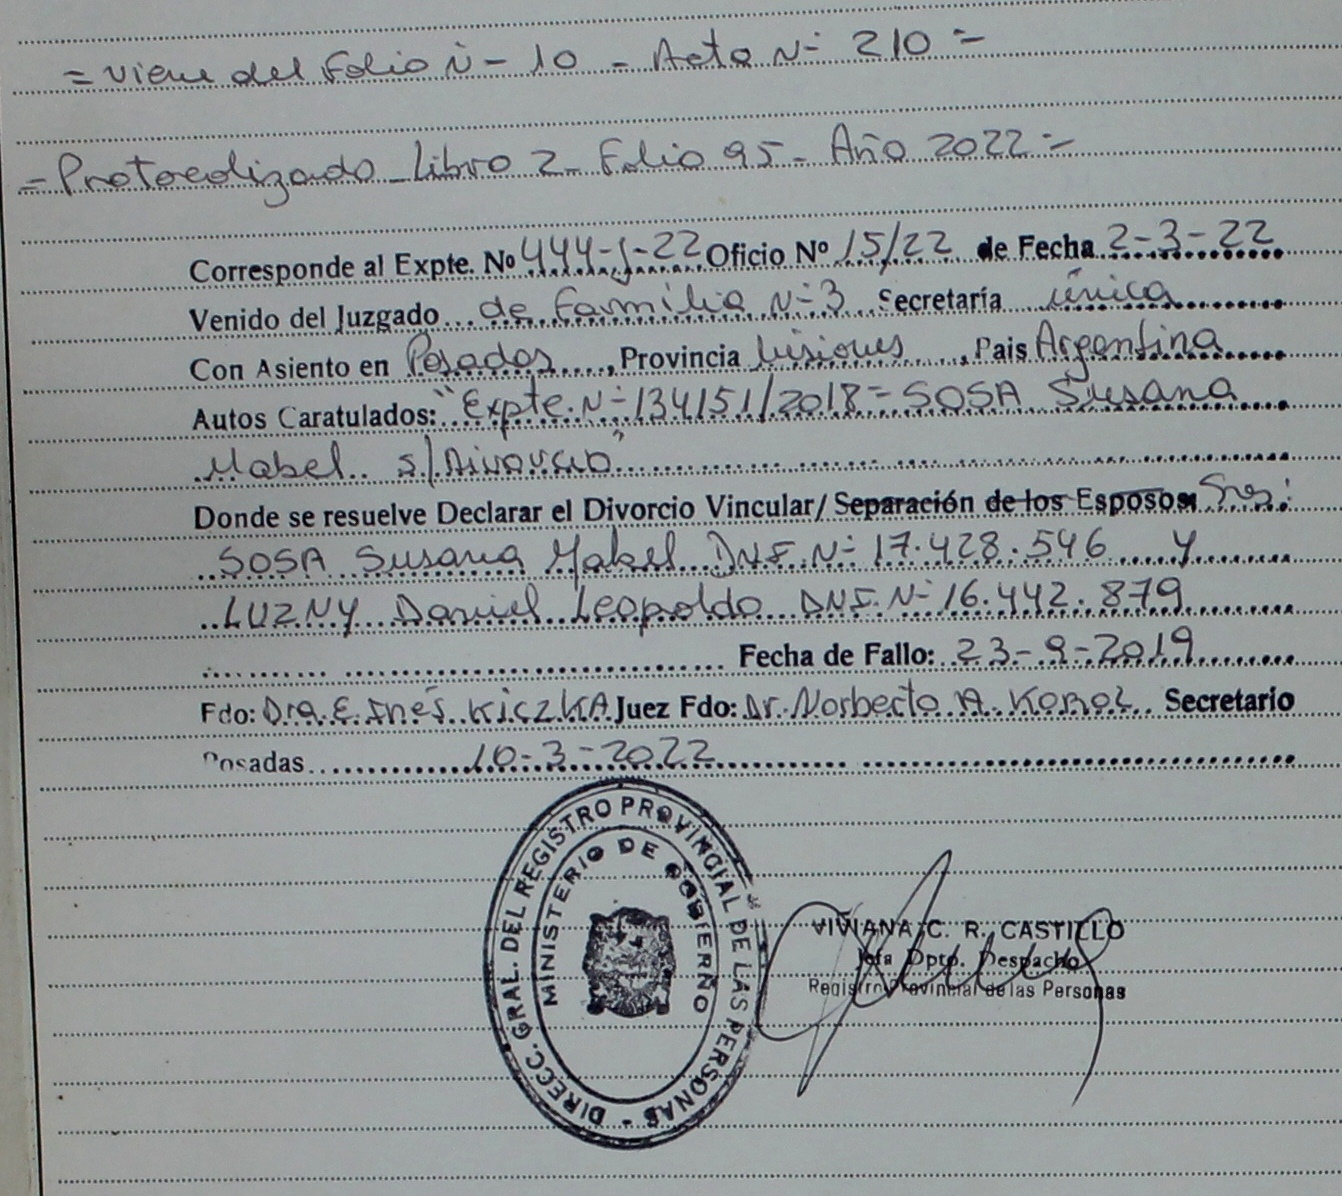 = Viene del Folio Nº - 10 - Acta Nº 210 =
= Protocolizado - Libro 2 - Folio 95 - Año 2022 =
Corresponde al Expte. Nº 444-J-22 Oficio Nº 15/22 de Fecha 2-3-22
Venido del Juzgado de Familia Nº 3 Secretaría única
Con Asiento en Posadas, Provincia Misiones, Pais Argentina
Autos Caratulados: "Expte. Nº 134151/2018 = SOSA Susana
Mabel s/Divorcio"
Donde se resuelve Declarar el Divorcio Vincular/ Separación de los Esposos Sres:
SOSA Susana Mabel DNI. Nº 17.428.546 y
LUZNY Daniel Leopoldo DNI. Nº 16.442.879
Fecha de Fallo: 23-9-2019
Fdo: Dra. E. Inés KICZKA Juez Fdo: Dr. Norberto A. KOROL Secretario
Posadas 10-3-2022
DIRECC. GRAL. DEL REGISTRO PROVINCIAL DE LAS PERSONAS -
MINISTERIO DE GOBIERNO
VIVIANA C. R. CASTILLO
Jefa Dpto. Despacho
Registro Provincial de las Personas